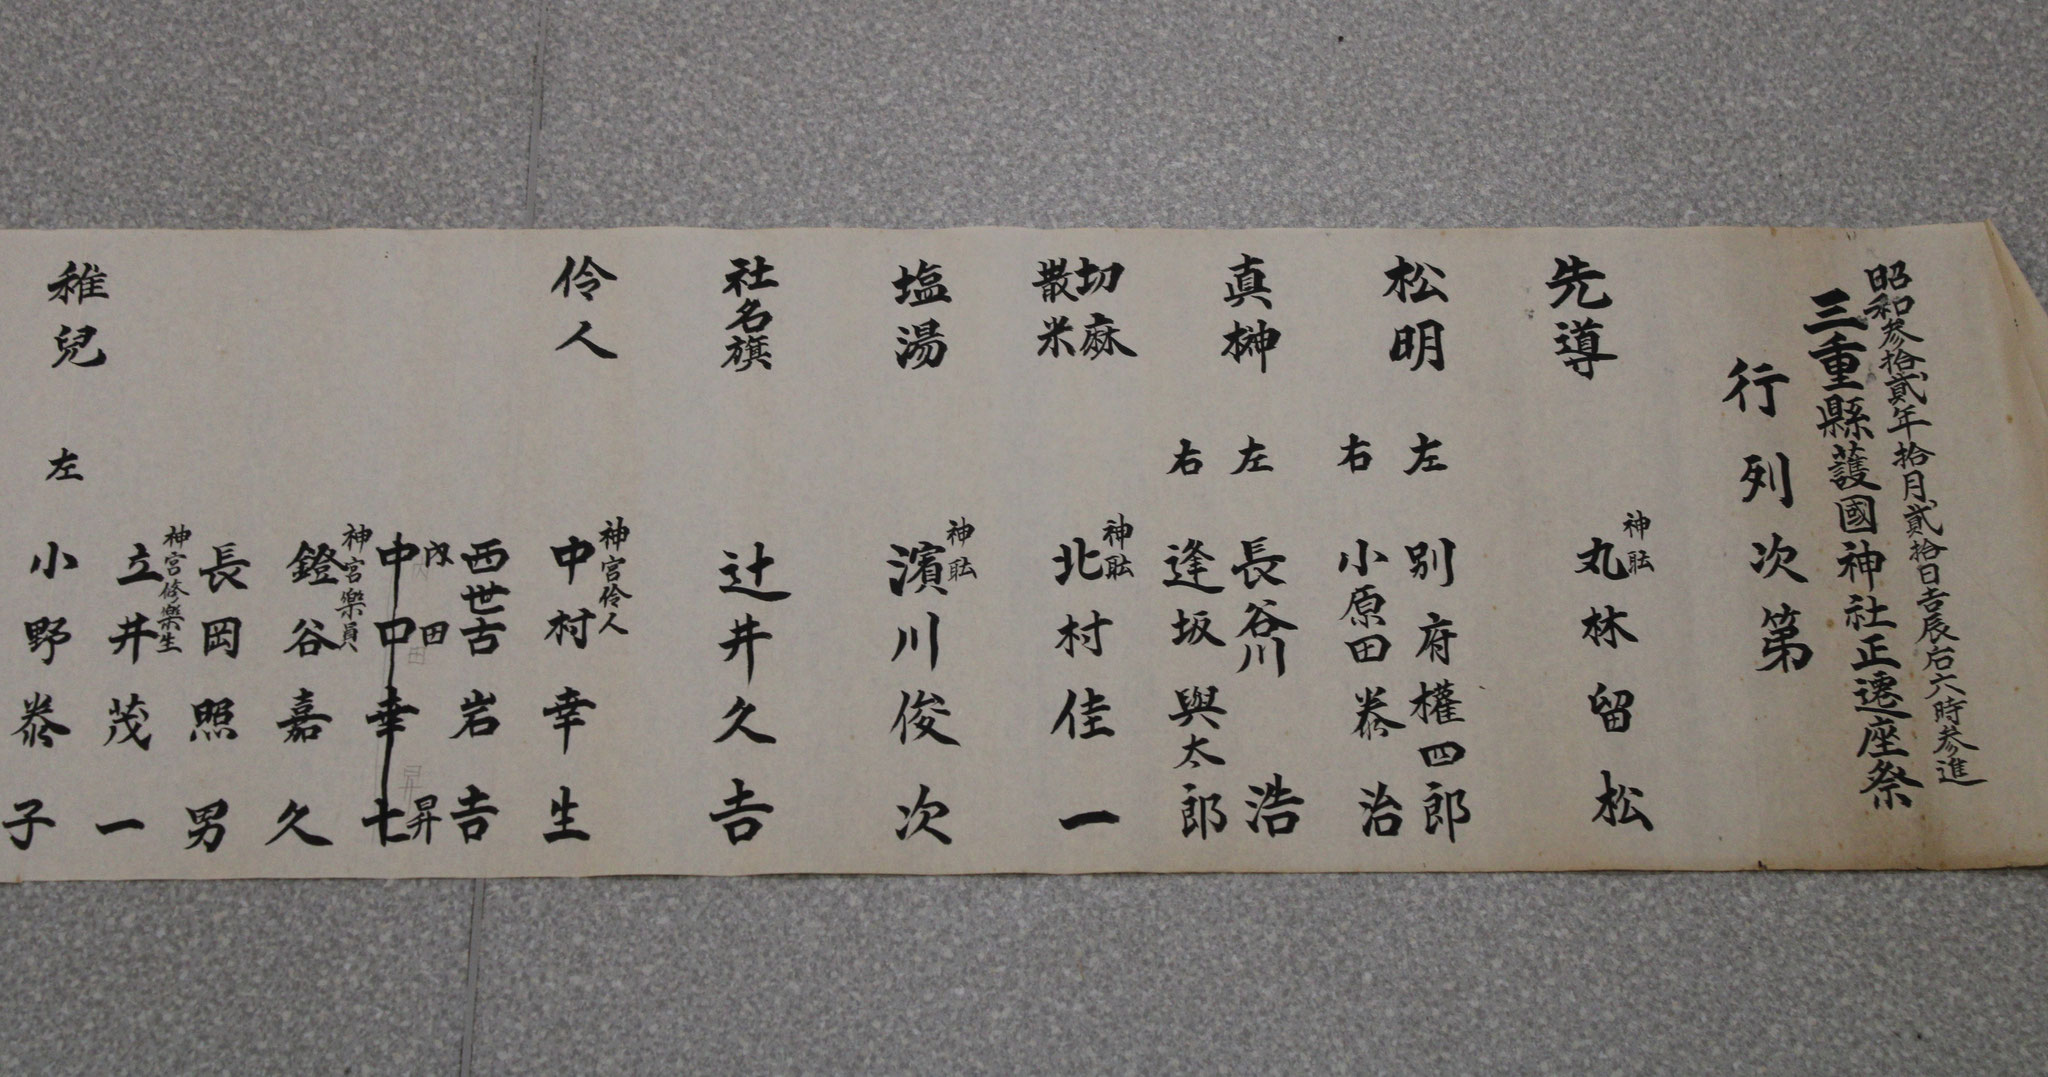 昭和参拾貳年拾月貳拾日吉辰后六時参進
三重縣護國神社正遷座祭
行列次第
先導
神職
丸林留松
松明
左 別府權四郎
右 小原田泰治
真榊
左 長谷川浩
右 逢坂與太郎
切麻
散米
神職
北村佳一
塩湯
神職
濱川俊次
社名旗
辻井久吉
伶人
神宮伶人
中村幸生
西世古岩吉
内田昇
中口幸七
神宮楽員
鐙谷嘉久
長岡照男
神宮修楽生
立井茂一
稚兒
左 小野泰子